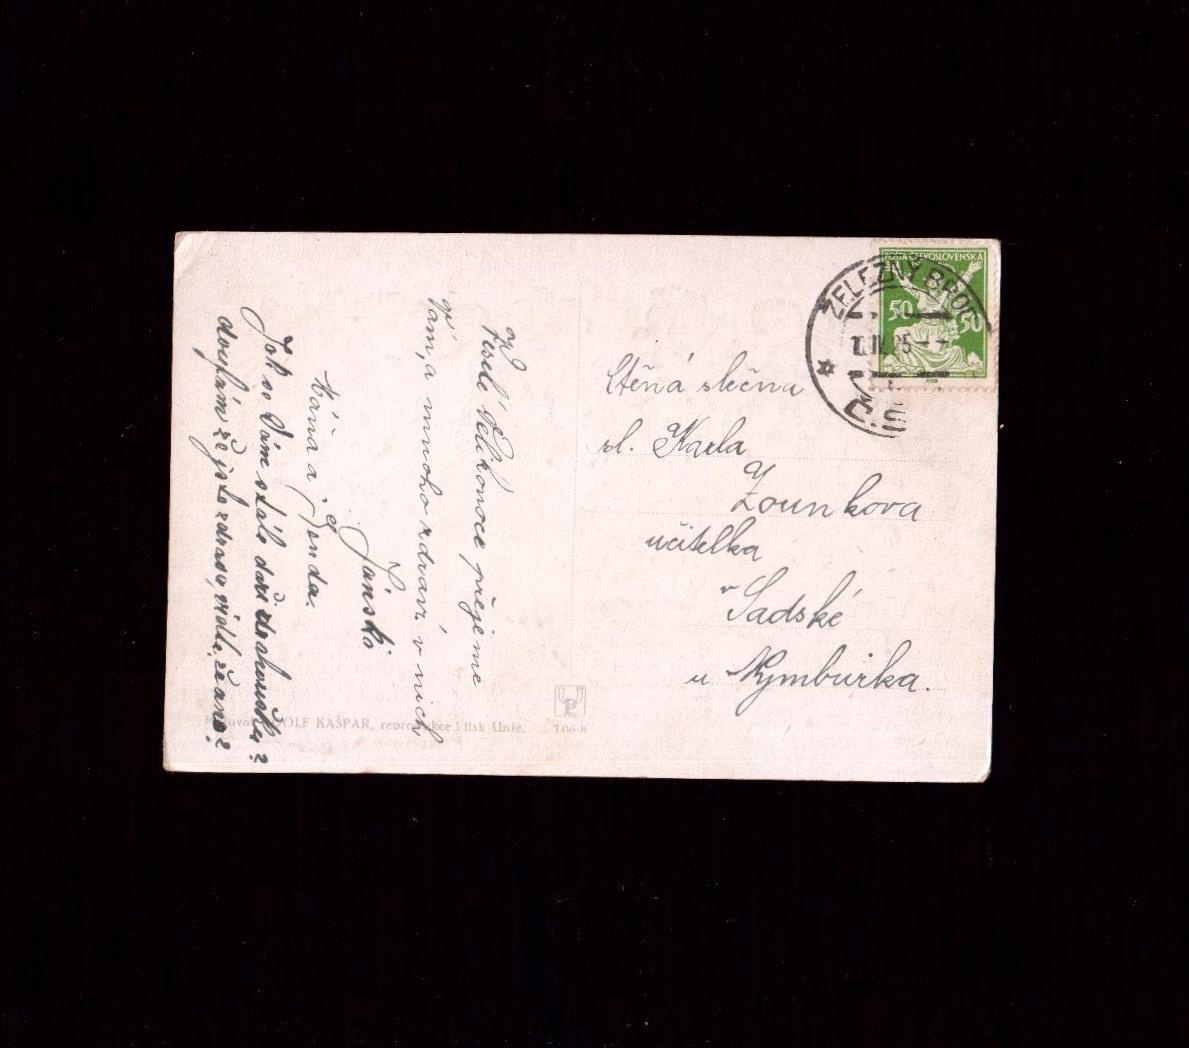 Veselé Velikonoce přejeme
Vám, a mnoho zdraví v nich
Jánsko
Máňa a Jenda.
Jak se Vám stále daří
doufám že jste zdráva, viďte, že ano?
Maloval ADOLF KAŠPAR, reprodukce i tisk Unie.
UPU
POŠTA ČESKOSLOVENSKÁ
50
50
ŽELEZNÝ BROD
IV 25
Č.S
Ctěná slečna
sl. Karla
Zounkova
učitelka
v Sadské
u Nymburka.